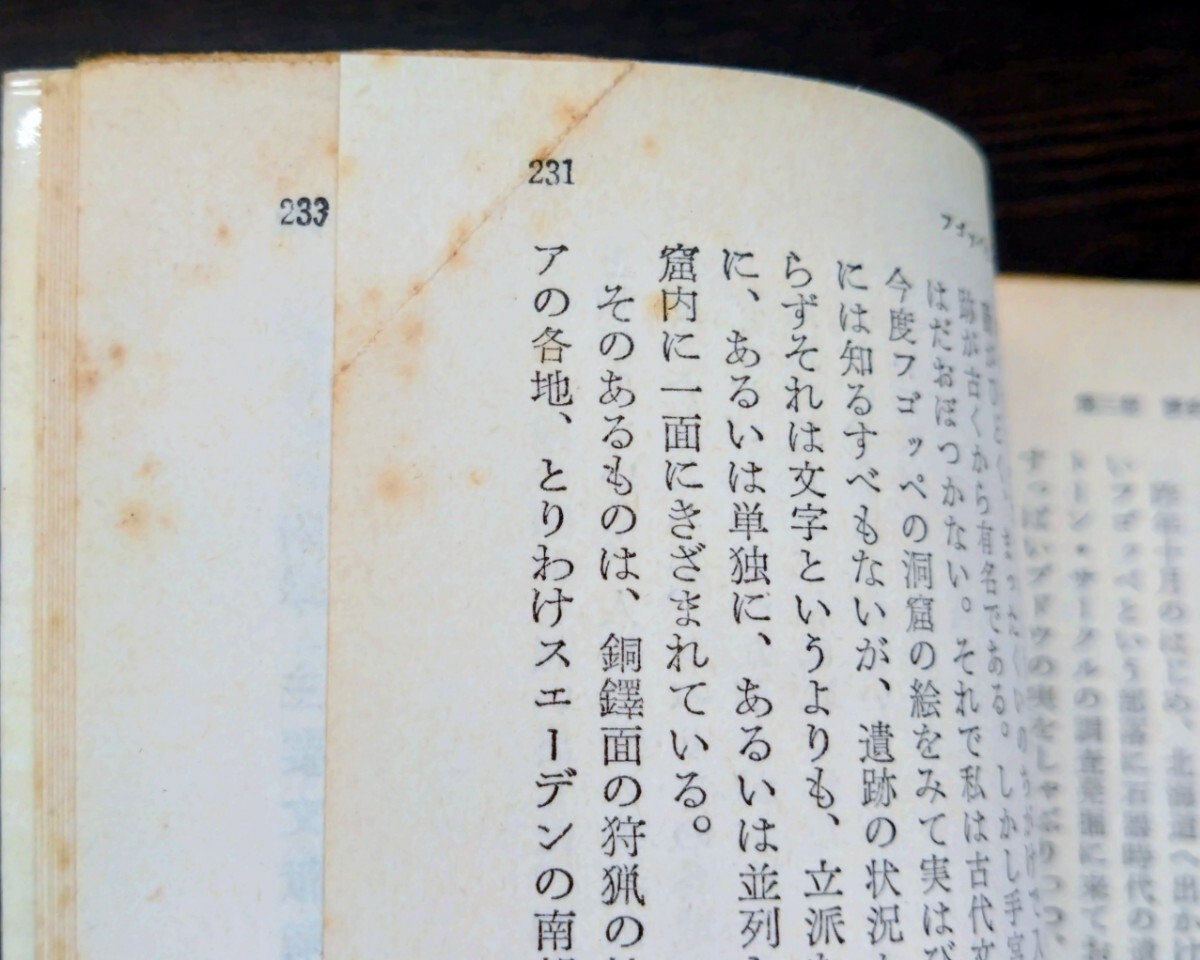 フゴッペ
跡が古くから有名である。しかし手宮
はだおぼつかない。それで私は古代文
今度フゴッペの洞窟の絵をみて実はび
には知るすべもないが、遺跡の状況
らずそれは文字というよりも、立派
に、あるいは単独に、あるいは並列
窟内に一面にきざまれている。
そのあるものは、銅鐸面の狩猟の
アの各地、とりわけスエーデンの南
231
233
昨年十月のはじめ、北海道へ出か
いフゴッペという部落に石器時代の遺
トーン・サークルの調査発掘に来てお
すっぱいブドウの実をしゃぶりつつ、